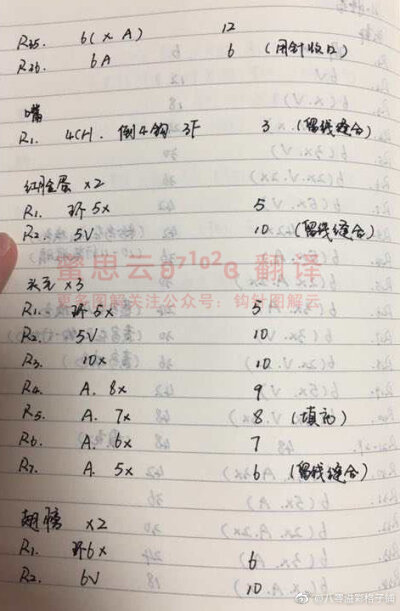 R25. 6(x A) 12
R26. 6A 6 (用针收口)
嘴
R1. 4CH. 倒4钩 3F 3 (留线缝合)
红脸蛋 x2
R1. 环5x 5
R2. 5V 10 (留线缝合)
头毛 x3
R1. 环5x 5
R2. 5V 10
R3. 10x 10
R4. A. 8x 9
R5. A. 7x 8 (填充)
R6. A. 6x 7
R7. A. 5x 6 (留线缝合)
翅膀 x2
R1. 环6x 6
R2. 6V 10
翻译
更多图解关注公众号：钩针图解云